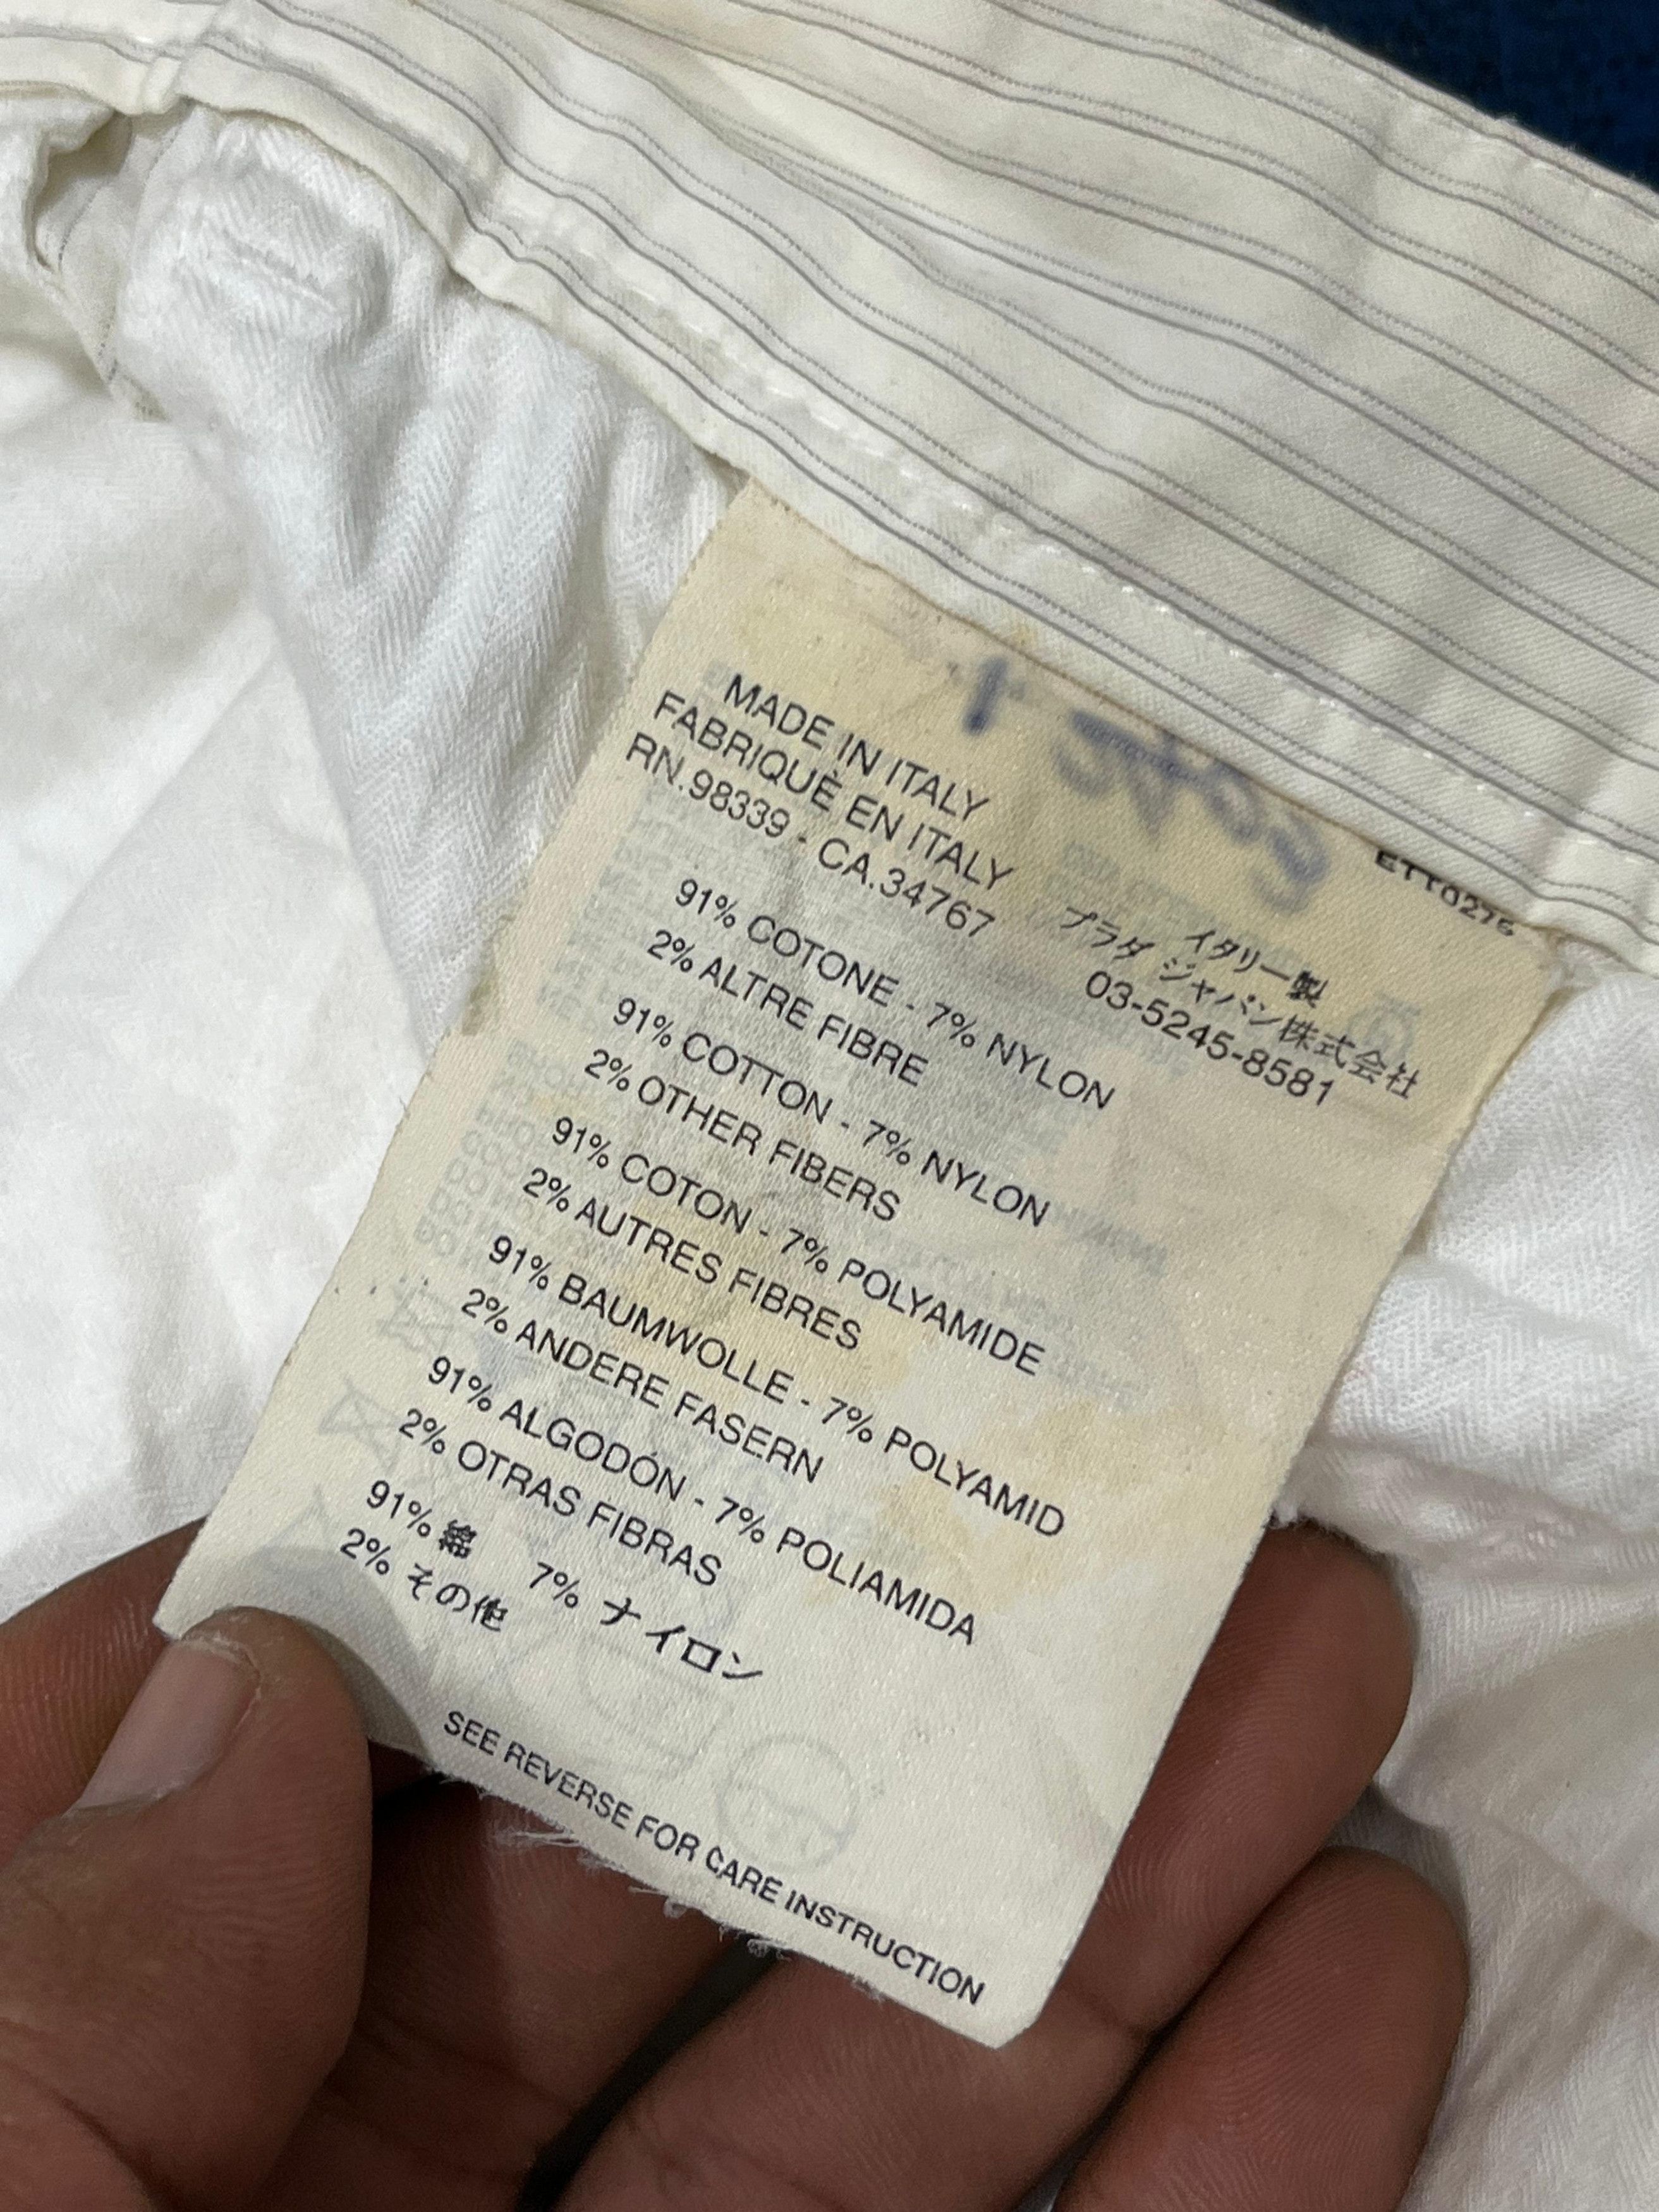 MADE IN ITALY
FABRIQUÈ EN ITALY
RN.98339 - CA.34767
イタリー製
プラダ ジャパン株式会社
03-5245-8581
91% COTONE - 7% NYLON
2% ALTRE FIBRE
91% COTTON - 7% NYLON
2% OTHER FIBERS
91% COTON - 7% POLYAMIDE
2% AUTRES FIBRES
91% BAUMWOLLE - 7% POLYAMID
2% ANDERE FASERN
91% ALGODÓN - 7% POLIAMIDA
2% OTRAS FIBRAS
91% 綿 7% ナイロン
2% その他
SEE REVERSE FOR CARE INSTRUCTION